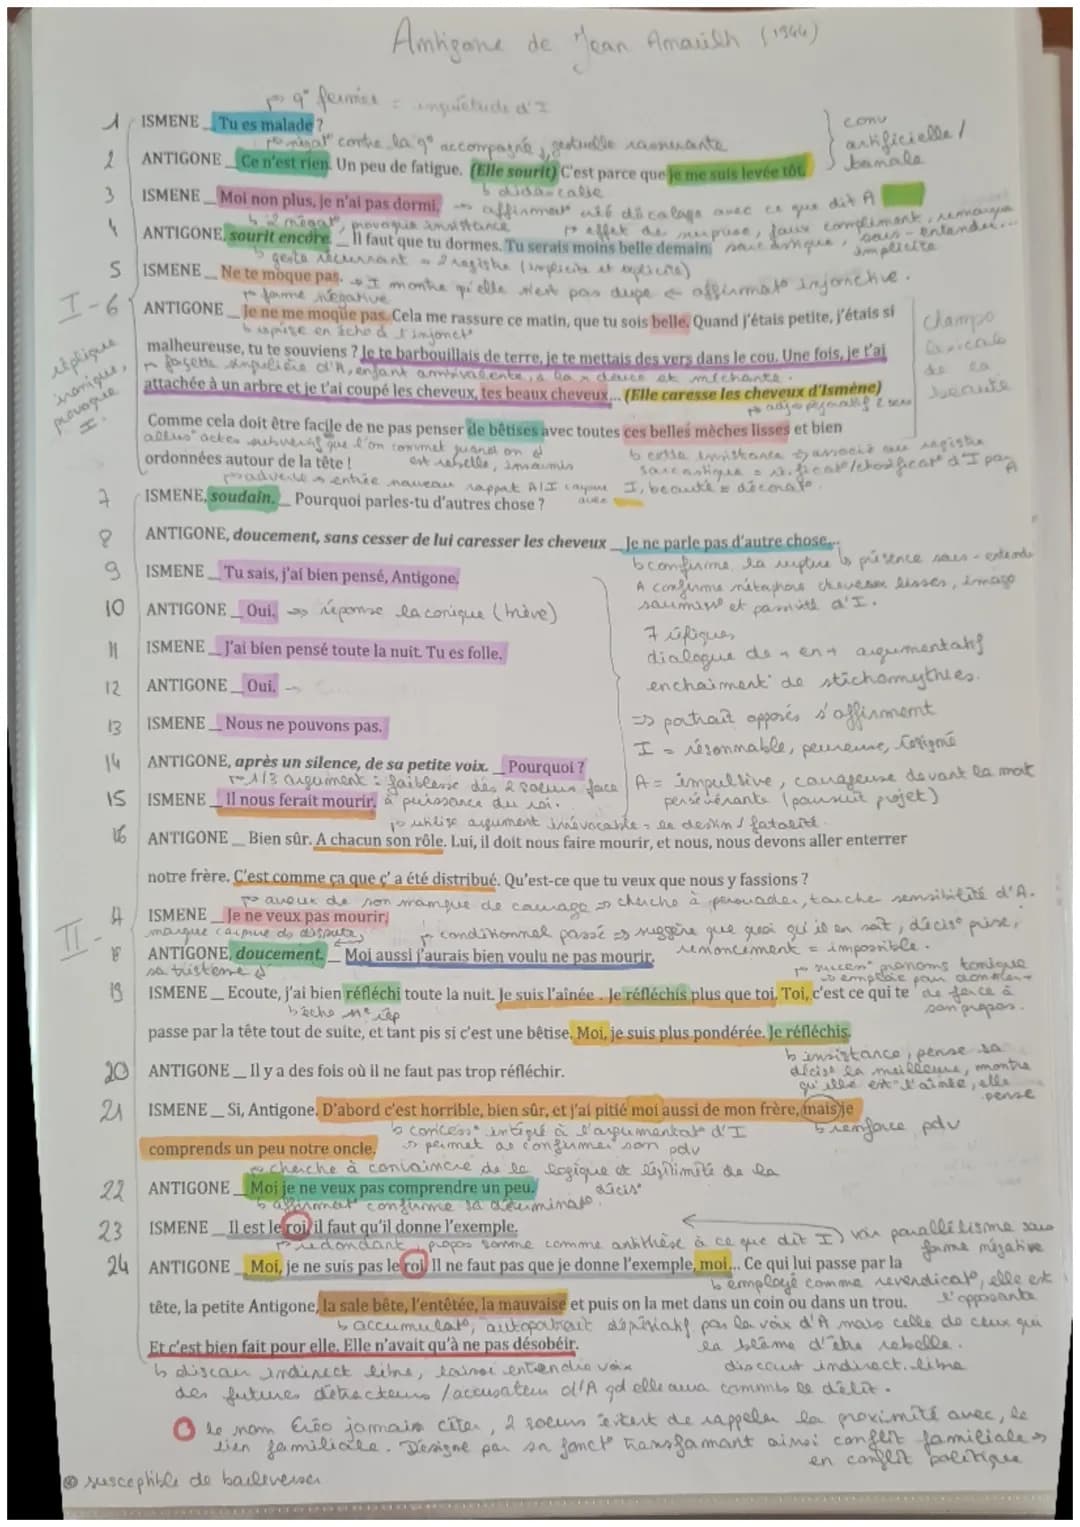 Antigone de Jean Anouilh (1944)
↳ q° fermée = inquiétude d'I
1 ISMENE _ Tu es malade ?
↳ négat° contre la q° accompagné, gestuelle rassurante
conv artificielle / banale
2 ANTIGONE _ Ce n'est rien. Un peu de fatigue. (Elle sourit) C'est parce que je me suis levée tôt.
↳ didascalie
3 ISMENE _ Moi non plus, je n'ai pas dormi.
→ affirmat° crée décalage avec ce que dit A
↳ 2 négat°, provoque insistance
↳ effet de surprise, faux compliment, remarque sarcastique, sous-entendu... implicite
4 ANTIGONE, sourit encore. _ Il faut que tu dormes. Tu serais moins belle demain.
↳ geste récurrent = 2 registre (implicite et explicite)
5 ISMENE _ Ne te moque pas.
→ I montre qu'elle n'est pas dupe ← affirmat° injonctive.
↳ forme négative
I - 6 ANTIGONE _ Je ne me moque pas. Cela me rassure ce matin, que tu sois belle. Quand j'étais petite, j'étais si
↳ reprise en écho à l'injonct°
Champs lexicale de la beauté
réplique ironique, provoque I.
malheureuse, tu te souviens ? Je te barbouillais de terre, je te mettais des vers dans le cou. Une fois, je t'ai
↳ facette singulière d'A, enfant ambivalente, à la x douce et méchante.
attachée à un arbre et je t'ai coupé les cheveux, tes beaux cheveux... (Elle caresse les cheveux d'Ismène)
↳ adj péjoratif 2 sens
Comme cela doit être facile de ne pas penser de bêtises avec toutes ces belles mèches lisses et bien
allus° actes subversifs que l'on commet quand on est rebelle, insoumis
↳ cette insistance associé au registre sarcastique = réificat°/chosificat° d'I par A
ordonnées autour de la tête !
I, beauté = décorat°.
7 ISMENE, soudain. _ Pourquoi parles-tu d'autres chose ?
8 ANTIGONE, doucement, sans cesser de lui caresser les cheveux _ Je ne parle pas d'autre chose...
↳ confirme la rupture ↳ présence sous-entendu
A confirme métaphore cheveux lisses, image soumise et passivité d'I.
9 ISMENE _ Tu sais, j'ai bien pensé, Antigone.
10 ANTIGONE _ Oui. → réponse laconique (brève)
11 ISMENE _ J'ai bien pensé toute la nuit. Tu es folle.
12 ANTIGONE _ Oui. →
13 ISMENE _ Nous ne pouvons pas.
7 répliques
dialogue de + en + argumentatif
enchaiment de stichomythies.
=> portrait opposés s'affirment
I = résonnable, peureuse, résigné
A = impulsive, courageuse devant la mort
persévérante (poursuit projet)
14 ANTIGONE, après un silence, de sa petite voix. _ Pourquoi ?
↳ 1/3 argument : faiblesse des 2 soeurs face à puissance du roi.
15 ISMENE _ Il nous ferait mourir.
↳ utilise argument irrévocable = le destin / fatalité.
16 ANTIGONE _ Bien sûr. A chacun son rôle. Lui, il doit nous faire mourir, et nous, nous devons aller enterrer
notre frère. C'est comme ça que ç'a été distribué. Qu'est-ce que tu veux que nous y fassions ?
↳ aveux de son manque de courage => cherche à persuader, toucher sensibilité d'A.
II - 17 ISMENE _ Je ne veux pas mourir.
↳ conditionnel passé => suggère que quoi qu'il en soit, décis° prise, renoncement = impossible.
18 ANTIGONE, doucement. _ Moi aussi j'aurais bien voulu ne pas mourir.
↳ success° pronoms tonique → employée pour donner + de force à son propos.
19 ISMENE _ Ecoute, j'ai bien réfléchi toute la nuit. Je suis l'aînée . Je réfléchis plus que toi. Toi, c'est ce qui te
passe par la tête tout de suite, et tant pis si c'est une bêtise. Moi, je suis plus pondérée. Je réfléchis.
↳ insistance, pense sa décis° la meilleure, montre qu'elle est l'aînée, elle pense
20 ANTIGONE _ Il y a des fois où il ne faut pas trop réfléchir.
21 ISMENE _ Si, Antigone. D'abord c'est horrible, bien sûr, et j'ai pitié moi aussi de mon frère, mais je
↳ concess° intégré à l'argumentat° d'I
↳ permet de confirmer son pdv
↳ renforce pdv
comprends un peu notre oncle.
↳ cherche à convaincre de la logique et légitimité de la décis°
22 ANTIGONE _ Moi je ne veux pas comprendre un peu.
↳ affirmat° confirme sa déterminat°.
23 ISMENE _ Il est le roi, il faut qu'il donne l'exemple.
↳ redondant, propos sonne comme antithèse à ce que dit I
voir parallélisme sous forme négative
24 ANTIGONE _ Moi, je ne suis pas le roi. Il ne faut pas que je donne l'exemple, moi... Ce qui lui passe par la
↳ employé comme revendicat°, elle est l'opposante
tête, la petite Antigone, la sale bête, l'entêtée, la mauvaise et puis on la met dans un coin ou dans un trou.
↳ accumulat°, autoportrait dépréciatif par la voix d'A mais celle de ceux qui la blâme d'être rebelle.
Et c'est bien fait pour elle. Elle n'avait qu'à ne pas désobéir.
discours indirect libre
↳ discour indirect libre, laissé entendre voix
des futures détracteurs / accusateur d'A qd elle aura commis le délit.
le nom Créo jamais citer, 2 soeurs évitent de rappeler la proximité avec, le
lien familiale. Désigne par sn fonct° transformant ainsi conflit familiale =>
en conflit politique
susceptible de bouleverser